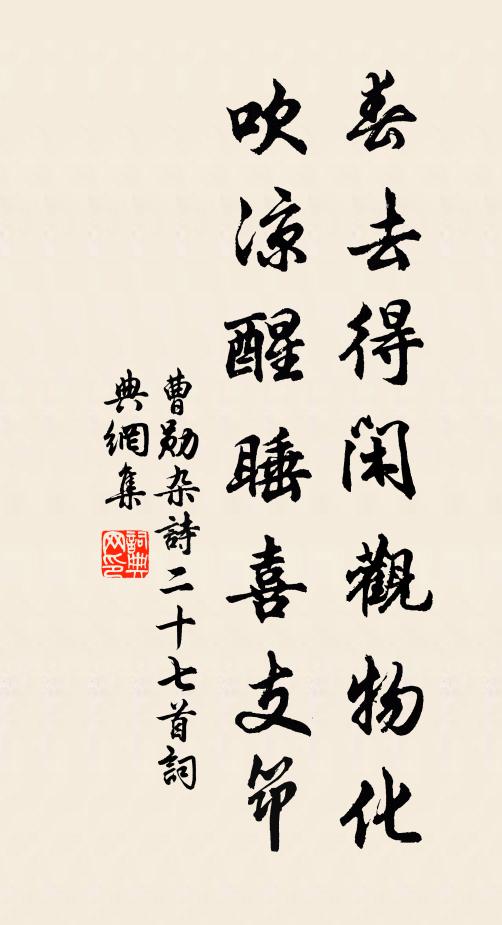 春去得闲觀物化
吹凉醒睡喜支筇
曹勋杂詩二十七首詞
典網集
詞典
网印